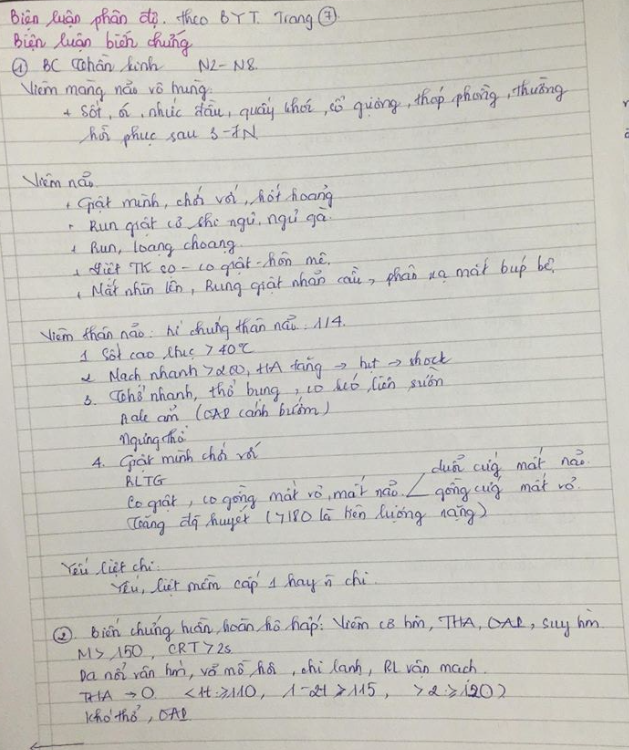 Biện luận phân độ. theo BYT. Trang 7.
Biện luận biến chứng
① BC Thần kinh N2-N8
Viêm màng não vô trùng
+ Sốt, ói, nhức đầu, quấy khóc, cổ gượng, thóp phồng, thường
hồi phục sau 3-7N
Viêm não
+ Giật mình, chới với, hốt hoảng
+ Run giật cơ khi ngủ, ngủ gà
+ Run, loạng choạng
+ Liệt TK sọ - co giật - hôn mê
+ Mắt nhìn lên, Rung giật nhãn cầu, phản xạ mắt búp bê.
Viêm thân não: hi chứng thân não: 1/4.
1 Sốt cao liên tục > 40°C
2 Mạch nhanh > 200, HA tăng → hạ → shock
3. Thở nhanh, thở bụng, co kéo liên sườn
Rale ẩm (OAP cánh bướm)
Ngưng thở
4. Giật mình chới với
RLTG
Co giật, co gồng mất vỏ, mất não. < duỗi cứng mất não
gồng cứng mất vỏ
Tăng đg huyết (>180 là tiên lượng nặng)
Yếu liệt chi
Yếu, liệt mềm cấp 1 hay n chi
② Biến chứng tuần hoàn hô hấp: Viêm cơ tim, THA, OAP, suy tim
M > 150, CRT > 2s
Da nổi vân tím, vã mồ hôi, chi lạnh, RL vận mạch
THA → 0. <1t: ≥110, 1-2t ≥ 115, >2: ≥120)
Khó thở, OAP